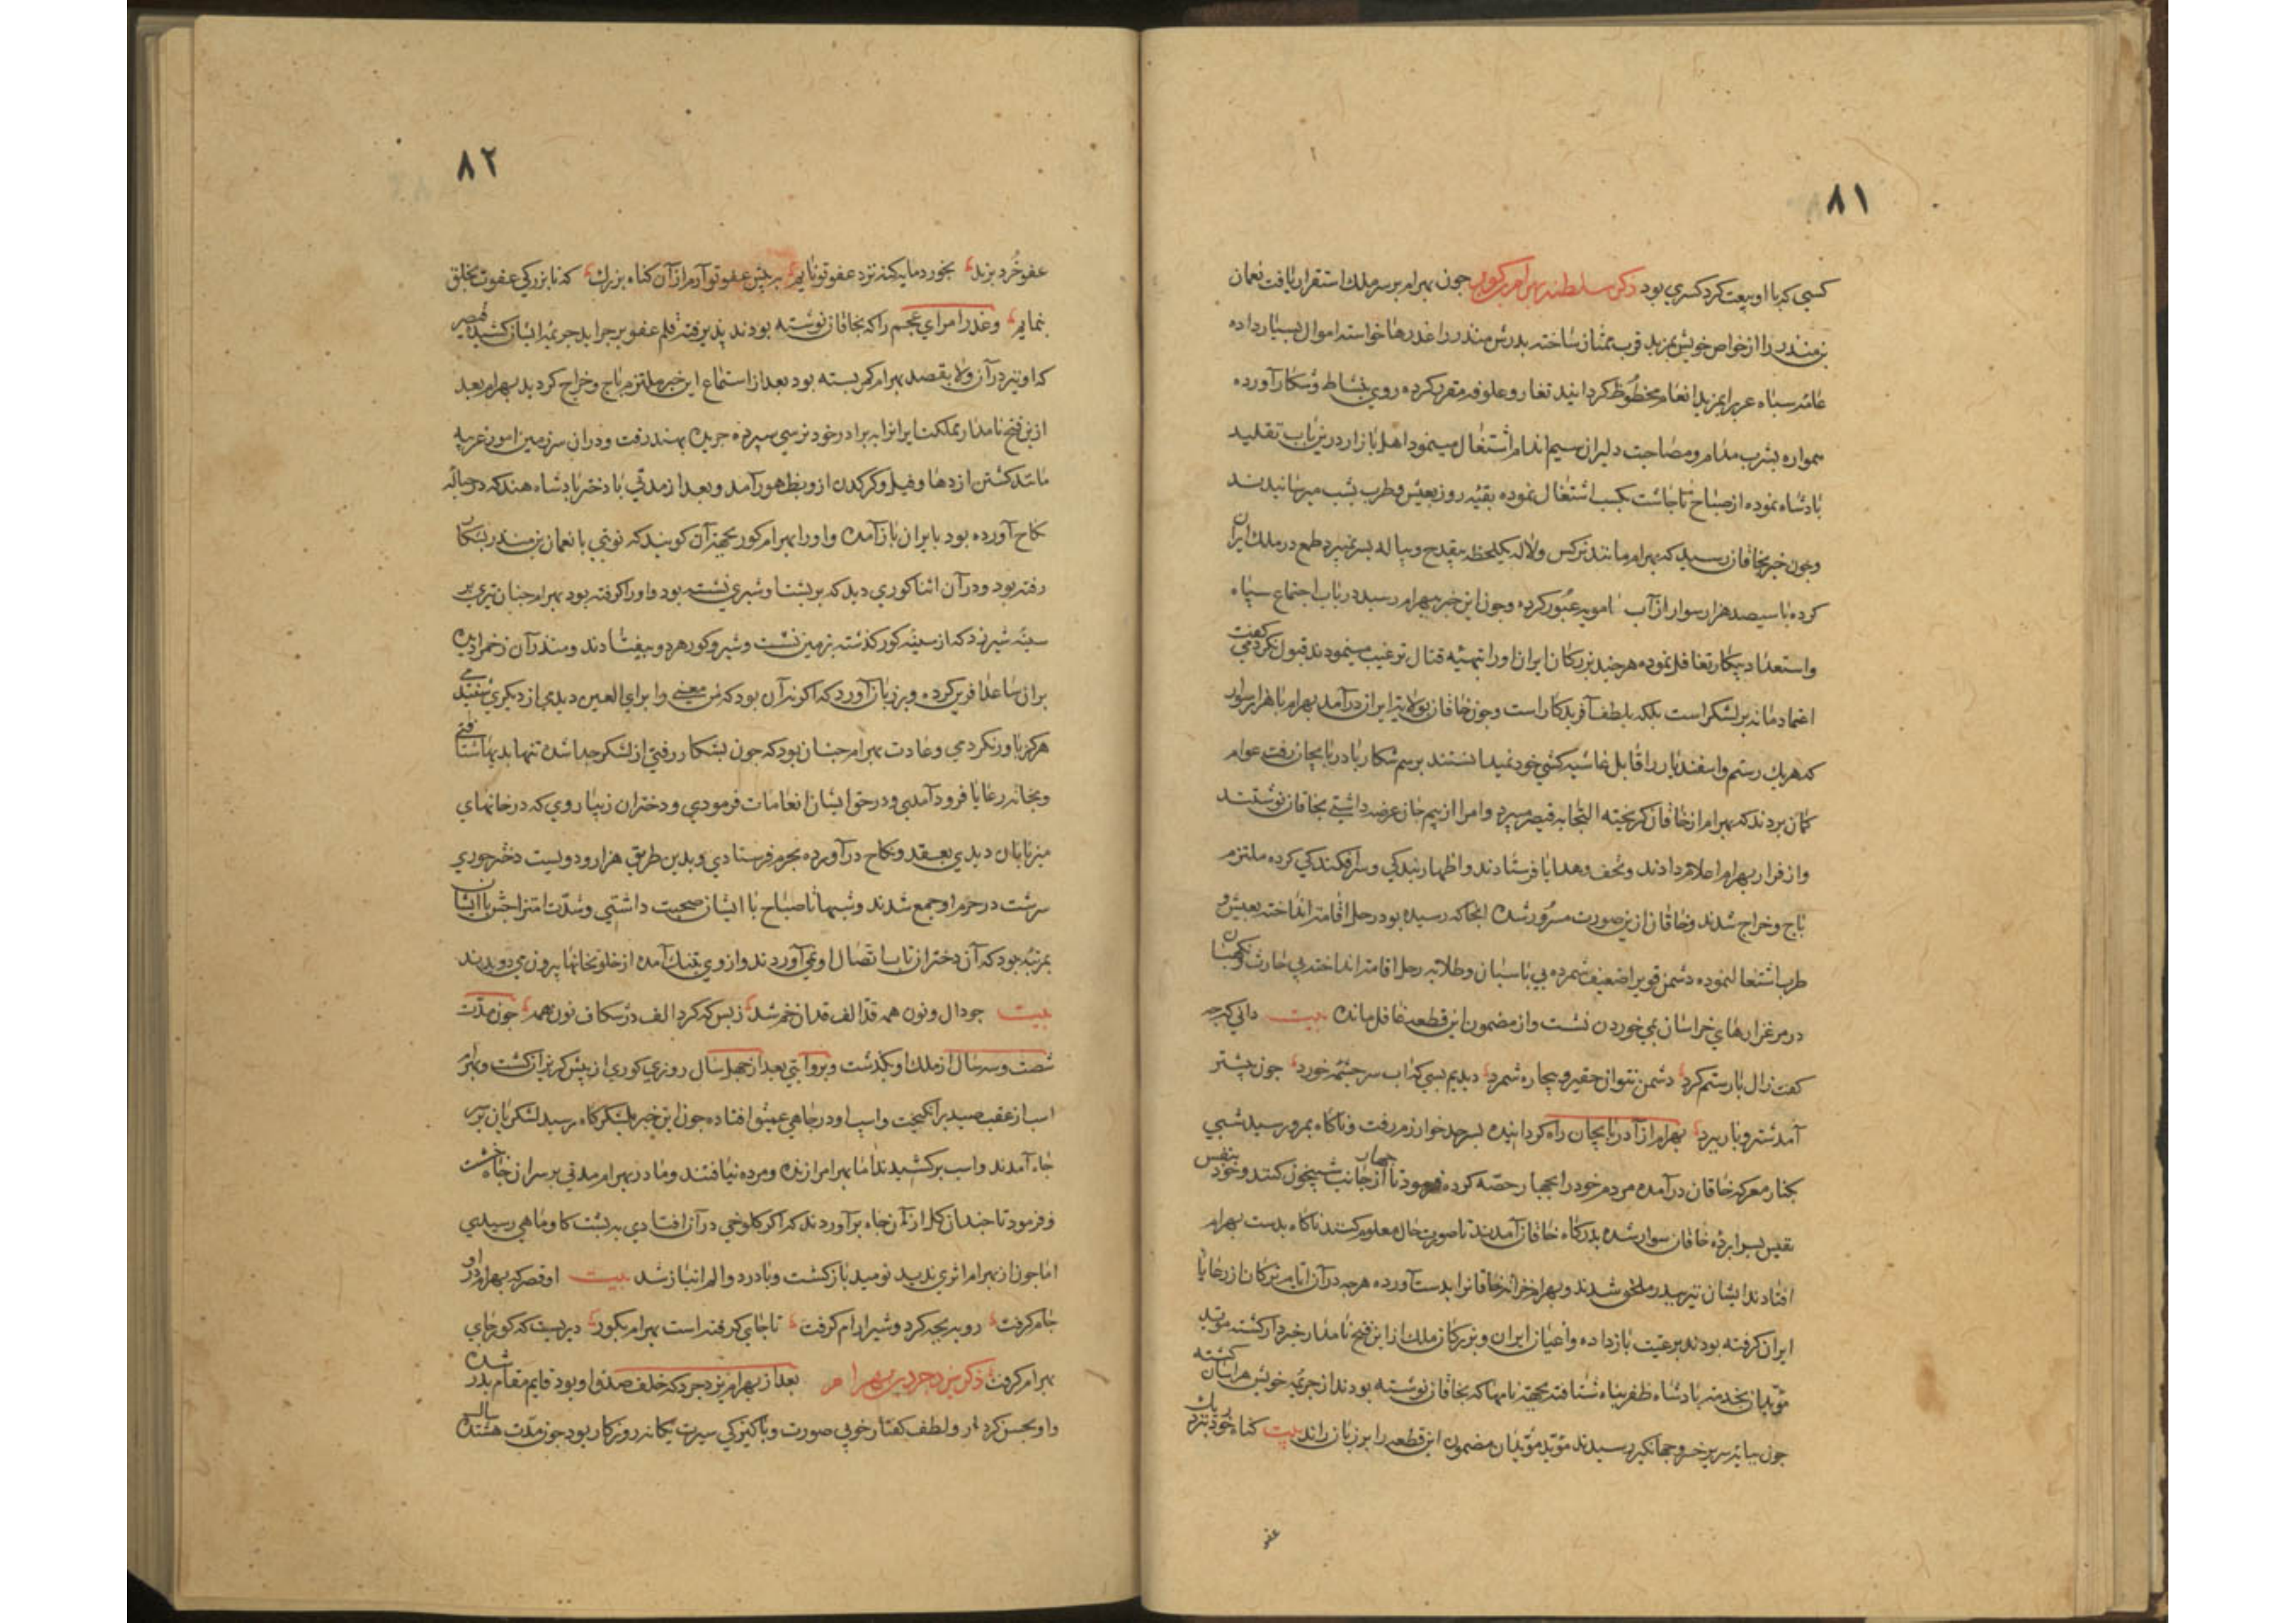 ۸۱
كسی که با او بیعت کرد کسری بود ذکر سلطنت بهرام گور جون بهرام بر سریر ملك استقرار یافت نعمان
بن منذر را از خواص خویش بمزید قرب ممتاز ساخته بدرش منذر را عذرها خواسته اموال بسیار داده
عامه سباه عرب را بمزید انعام محظوظ کردانید تغار و علوفه مقرر کرده روی بنشاط و شکار آورده
همواره بشرب مدام و مصاحبت دلبران سیم اندام اشتغال مینمود اهل بازار درین باب تقلید
بادشاه نموده از صباح تا جاشت بکسب اشتغال نموده بقیه روز بعیش و طرب بشب میرسانیدند
وجون خبر بخاقان رسید که بهرام مانند نرکس ولاله یکلحظه بیقدح وبیاله بسر نمیبرد طمع در ملك ایران
کرده با سیصد هزار سوار از آب امویه عبور کرده وجون این خبر ببهرام رسید در باب اجتماع سپاه
واستعداد پیکار تغافل نموده هرجند بزرکان ایران اورا بتهیئه قتال ترغیب مینمودند قبول نکردمی کفت
اعتماد ما نه بر لشکر است بلکه بلطف آفریدکار است وجون خاقان بولایت ایران درآمد بهرام با هزار سوار
که هریك رستم واسفندیار را قابل غاشیه کشی خود نمیدانستند برسم شکار باذربایجان رفت عوام
کمان بردند که بهرام از خاقان کریخته التجا به قیصر میبرد وامرا از بیم جان عرضه داشتی بخاقان نوشتند
واز فرار بهرام اعلام دادند وتحف وهدایا فرستادند واظهار بندکی وسرافکندکی کرده ملتزم
باج وخراج شدند وخاقان ازین صورت مسرور شده انجا که رسیده بود رحل اقامت انداخته بعیش و
طرب اشتغال نموده دشمن قوی را ضعیف شمرده بی پاسبان وطلایه رحل اقامت انداخته بی حارث ونکهبان
در مرغزارهای خراسان بمی خوردن نشست واز مضمون این قطعه غافل مانده بیت دانی که جه
کفت زال با رستم کرد دشمن نتوان حقیر وبیچاره شمرد دیدیم بسی که اب سرجشمه خورد جون پیشتر
آمد شتر وبار ببرد بهرام از آذربایجان راه کردانیده بسرحد خوارزم رفت وناکاه بمرو رسید شبی
بکنار معرکه خاقان درآمده مردم خود را بجهار حصه کرده فرمود تا از جهار جانب شبیخون کنند وخود بنفس
نفیس برابرده خاقان سوار شده بدرکاه خاقان آمدند تا صورت حال معلوم کنند ناکاه بدست بهرام
افتادند ایشان نیز ببدر ملحق شدند وبهرام خزانه خاقان را بدست آورده هرجه در آن ایام ترکان از رعایا
ایران کرفته بودند برعیت باز داده واعیان ایران وبزرکان ملك از این فتح نامدار خبردار کشته موبد
موبدان بخدمت بادشاه ظفر بناه شتافته بجهت نامها که بخاقان نوشته بودند از جریمه خویش هراسان کشته
جون ببایه سریر خسرو جهانکیر رسیدند موبد موبدان مضمون این قطعه را بر زبان راند بیت کناه خود بنزد
عفو
۸۲
عفو خُرد بزند بخورد مایکنه نزد عفو تو نایم به پیش عفو تو آرم از آن کناه بزرك که تا بزرکی عفوت بخلق
بنمایم وعذر امرای عجم را که بخاقان نوشته بودند پذیرفته قلم عفو بر جراید جریمه ایشان کشید قیصر
که او نیز در آن ولا بقصد بهرام کمر بسته بود بعد از استماع این خبر ملتزم باج وخراج کردید بهرام بعد
ازین فتح نامدار مملکت ایران را به برادر خود نرسی سپرده جریده بهند رفت ودران سرزمین امور غریبه
مانند کشتن ازدها وفیل وکرکدن ازو بظهور آمد وبعد از مدتی با دختر بادشاه هند که در حباله
نکاح آورده بود بایران باز آمده واورا بهرام کور بجهة آن کویند که نوبتی با نعمان بن منذر بشکار
رفته بود ودر آن اثنا کوری دید که بر بشت او شیری نشسته بود واورا کرفته بود بهرام جنان تیری بر
سینه شیر زد که از سینه کور کذشته بزمین نشست وشیر وکور هردو بیفتادند ومنذر آن زخم را دیده
بران ساعد آفرین کرده وبر زبان آورد که اکر نه آن بود که من معینی را برای العین دیدمی از دیکری شنیدمی
هرکز باور نکردمی وعادت بهرام جنان بود که جون بشکار رفتی از لشکر جدا شده تنها بدیهها شتافتی
وبخانه رعایا فرود آمدی ودر حق ایشان انعامات فرمودی ودختران زیبا روی که در خانهای
میزبانان دیدی بعقد ونکاح درآورده بحرم فرستادی وبدین طریق هزار ودویست دختر حوری
سرشت در حرم او جمع شدند وشبها تا صباح با ایشان صحبت داشتی وشدّت امتزاجش با ایشان
بمرتبه بود که آن دختران تاب اتصال او نمی آوردند واز وی بتنك آمده از خلوتخانها بیرون می دویدند
بیت جو دال ونون همه قدّ الف قدان خم شد ز بس که کرد الف در شکاف نون همه جون مدّت
شصت وسه سال از ملك او بکذشت وبروایتی بعد از جهل سال روزی کوری از پیش کریزان کشت وبهرام
اسب از عقب صید برانکیخت واسب او در جاهی عمیق افتاده جون این خبر بلشکرکاه رسید لشکریان بر سر
جاه آمدند واسب برکشیدند اما بهرام را زنده ومرده نیافتند ومادر بهرام مدتی بر سر آن جاه نشست
وفرمود تا جندان کل از آن جاه برآوردند که اکر کلوخی در آن افتادی به بشت کاو وماهی رسیدی
اما جون از بهرام اثری ندید نومید باز کشت وبا درد والم انباز شد بیت او قصر که بهرام درو
جام کرفت روبه بجه کرد وشیر آرام کرفت تا جای کرفته است بهرام بکور دیریست که کور جای
بهرام کرفت ذکر یزدجرد بن بهرام بعد از بهرام یزدجرد که خلف صدق او بود قایم مقام بدر شده
واو بحسن کردار ولطف کفتار خوبی صورت وباکیزکی سیرت یکانه روزکار بود جون مدّت هشتده سال